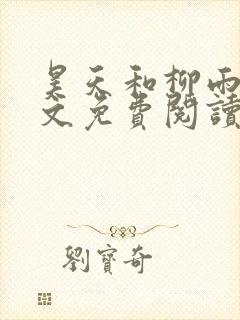 昊天和柳雨
文免費閱讀
劉寶奇